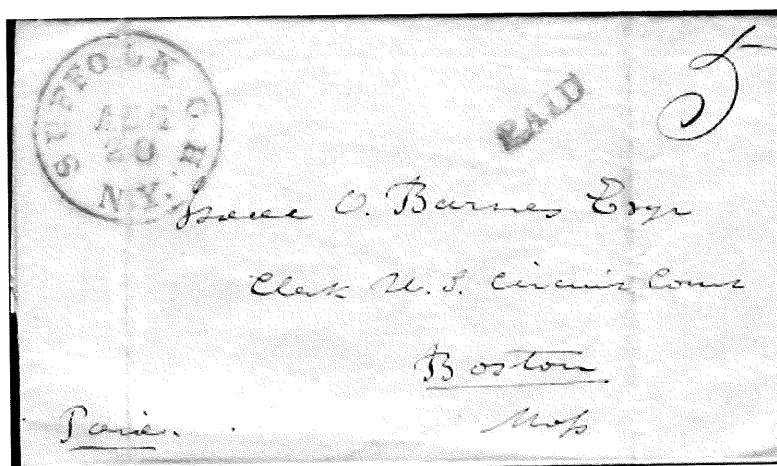 SUFFOLK C.H.
AUG
20
N.Y.
PAID
5
Isaac O. Barnes Esqr
Clerk U.S. Circuit Court
Boston
Mass
Paid.